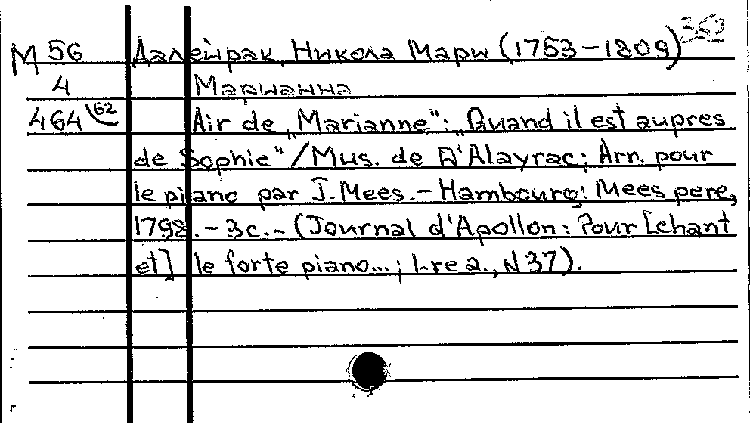 363
M 56 Далейрак, Никола Мари (1753-1809)
4 Марианна
464 62 Air de „Marianne": „Quand il est aupres
de Sophie" / Mus. de D'Alayrac; Arr. pour
le piano par J. Mees. - Hambourg: Mees pere,
1798. - 3c. - (Journal d'Apollon: Pour [chant
et] le forte piano...; 1-re a., N 37).